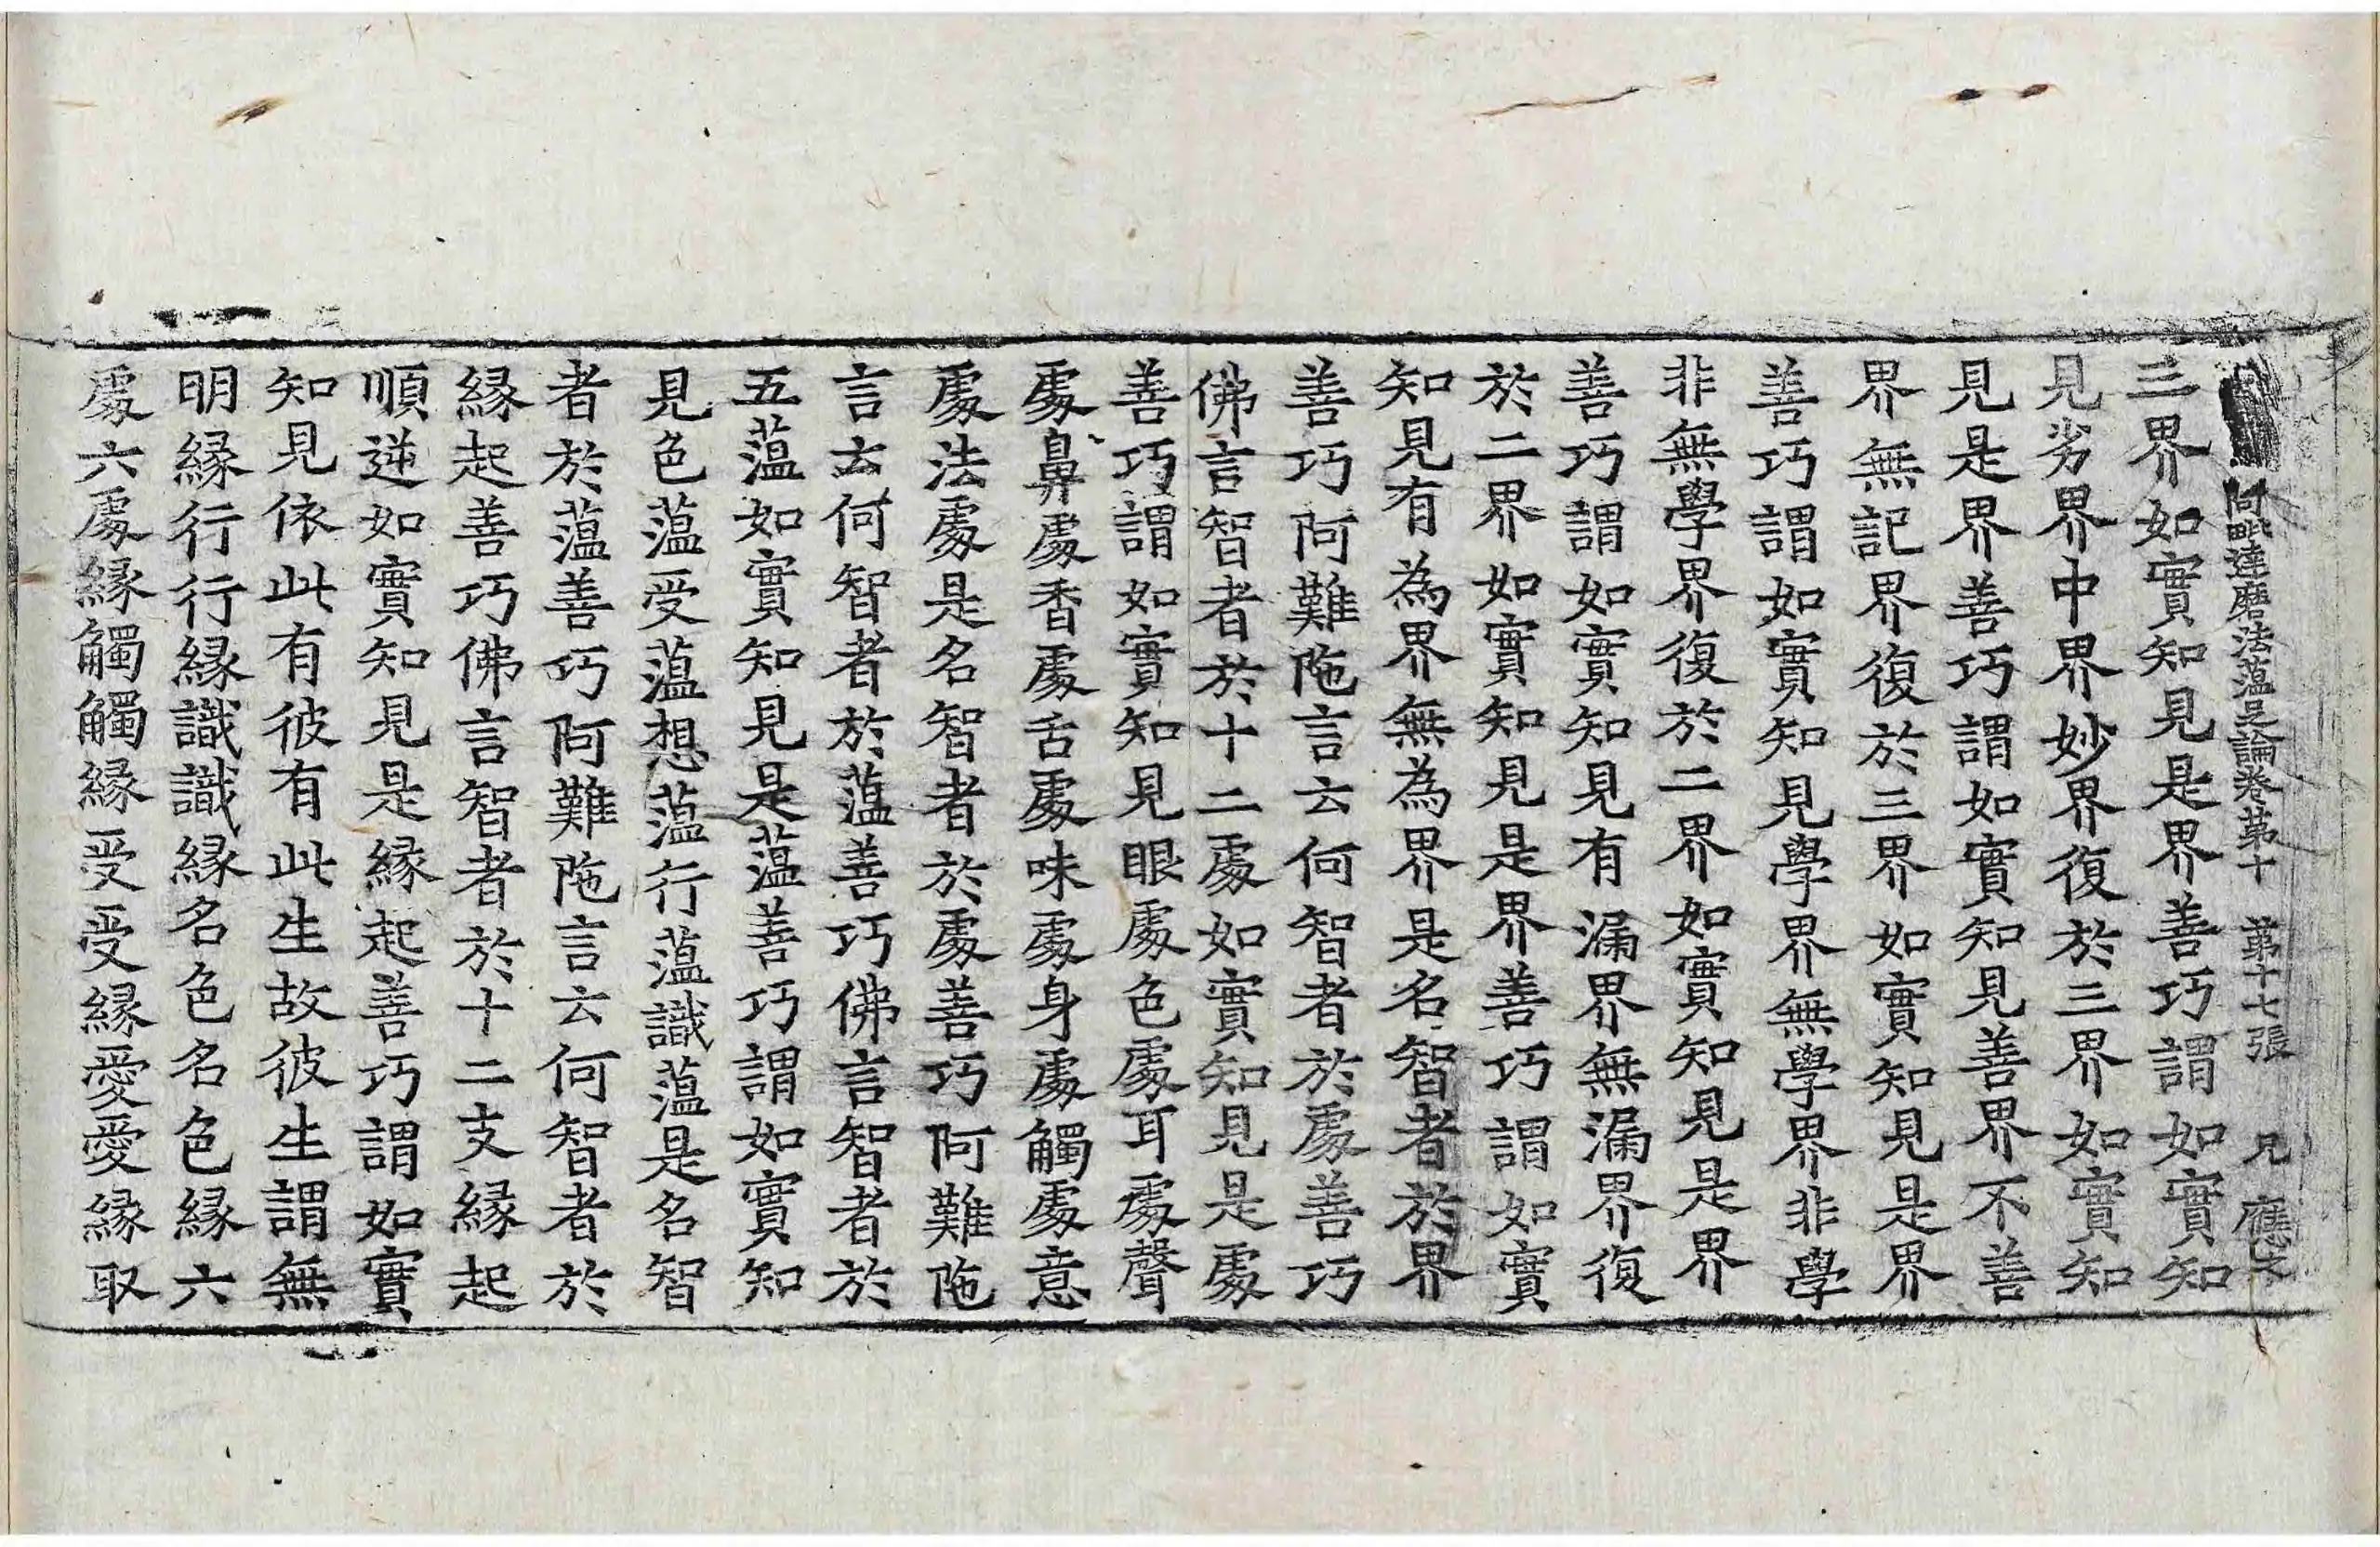 阿毗達磨法蘊足論卷苐十 苐十七張 兄 應文
三界如實知見是界善巧謂如實知
見劣界中界妙界復於三界如實知
見是界善巧謂如實知見善界不善
界無記界復於三界如實知見是界
善巧謂如實知見學界無學界非學
非無學界復於二界如實知見是界
善巧謂如實知見有漏界無漏界復
於二界如實知見是界善巧謂如實
知見有為界無為界是名智者於界
善巧阿難陁言云何智者於處善巧
佛言智者於十二處如實知見是處
善巧謂如實知見眼處色處耳處聲
處鼻處香處舌處味處身處觸處意
處法處是名智者於處善巧阿難陁
言云何智者於蘊善巧佛言智者於
五蘊如實知見是蘊善巧謂如實知
見色蘊受蘊想蘊行蘊識蘊是名智
者於蘊善巧阿難陁言云何智者於
緣起善巧佛言智者於十二支緣起
順逆如實知見是緣起善巧謂如實
知見依此有彼有此生故彼生謂無
明緣行行緣識識緣名色名色緣六
處六處緣觸觸緣受受緣愛愛緣取